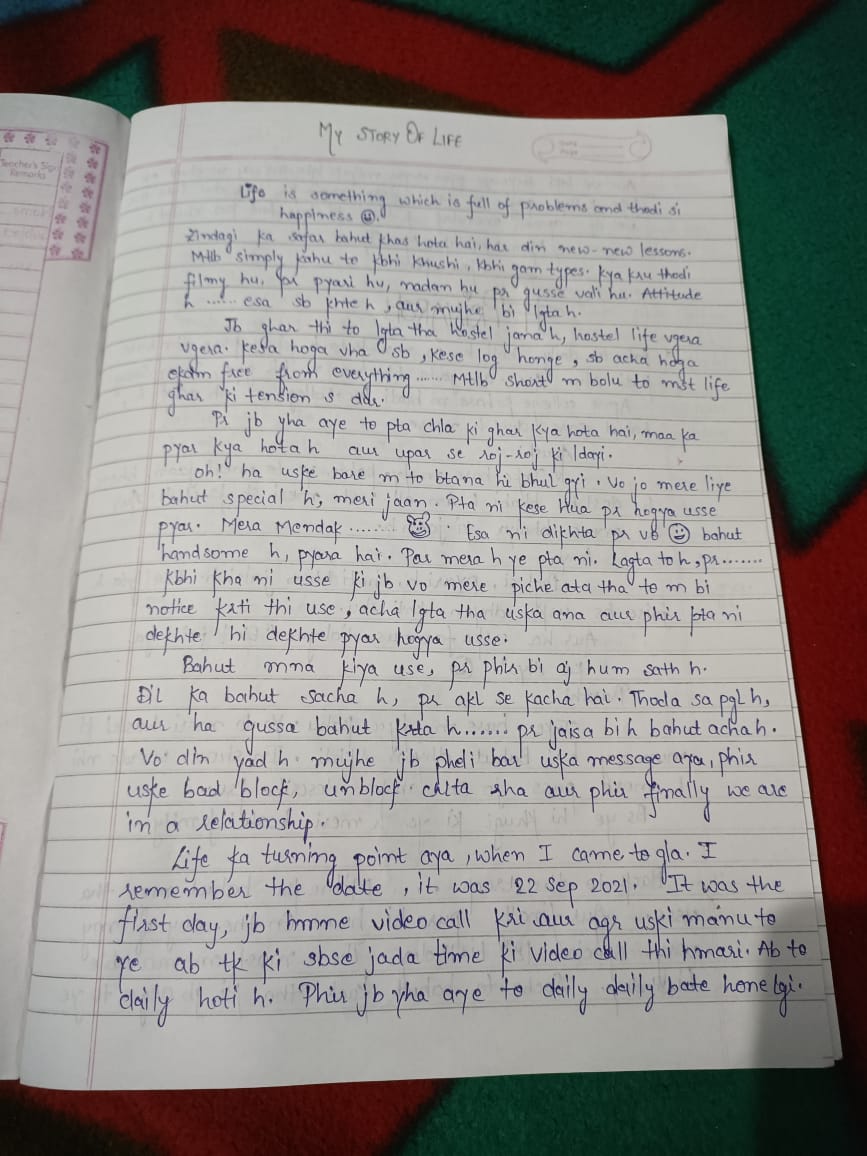 Teacher's Sig
Remarks
MY STORY OF LIFE
Life is something which is full of problems and thodi si
happiness 😊.
Zindagi ka safar bahut khas hota hai, har din new-new lessons.
Mtlb simply kahu to kbhi khushi, kbhi gam types. Kya kru thodi
filmy hu, pr pyari hu, nadan hu pr gusse vali hu. Attitude
h ...... esa sb khte h, aur mujhe bi lgta h.
Jb ghar thi to lgta tha hostel jana h, hostel life vgera
vgera. Kesa hoga vha sb, kese log honge, sb acha hoga
ekdam free from everything...... Mtlb short m bolu to mst life
ghar ki tension s dur.
Pr jb yha aye to pta chla ki ghar kya hota hai, maa ka
pyar kya hota h aur upar se roj-roj ki ldayi.
oh! ha uske bare m to btana hi bhul gyi. Vo jo mere liye
bahut special h, meri jaan. Pta ni kese hua pr hogya usse
pyar. Mera Mendak ......... . Esa ni dikhta pr vo 😊 bahut
handsome h, pyara hai. Par mera h ye pta ni. Lagta to h, pr.......
kbhi kha ni usse ki jb vo mere piche ata tha to m bi
notice krti thi use, acha lgta tha uska ana aur phir pta ni
dekhte hi dekhte pyar hogya usse.
Bahut mna kiya use, pr phir bi aj hum sath h.
Dil ka bahut sacha h, pr akl se kacha hai. Thoda sa pgl h,
aur ha gussa bahut krta h...... pr jaisa bi h bahut acha h.
Vo din yad h mujhe jb pheli bar uska message aya, phir
uske bad block, unblock chlta rha aur phir finally we are
in a relationship.
Life ka turning point aya, when I came to gla. I
remember the date, it was 22 Sep 2021. It was the
first day, jb hmne video call kri aur agr uski manu to
ye ab tk ki sbse jada time ki video call thi hmari. Ab to
daily hoti h. Phir jb yha aye to daily daily bate hone lgi.